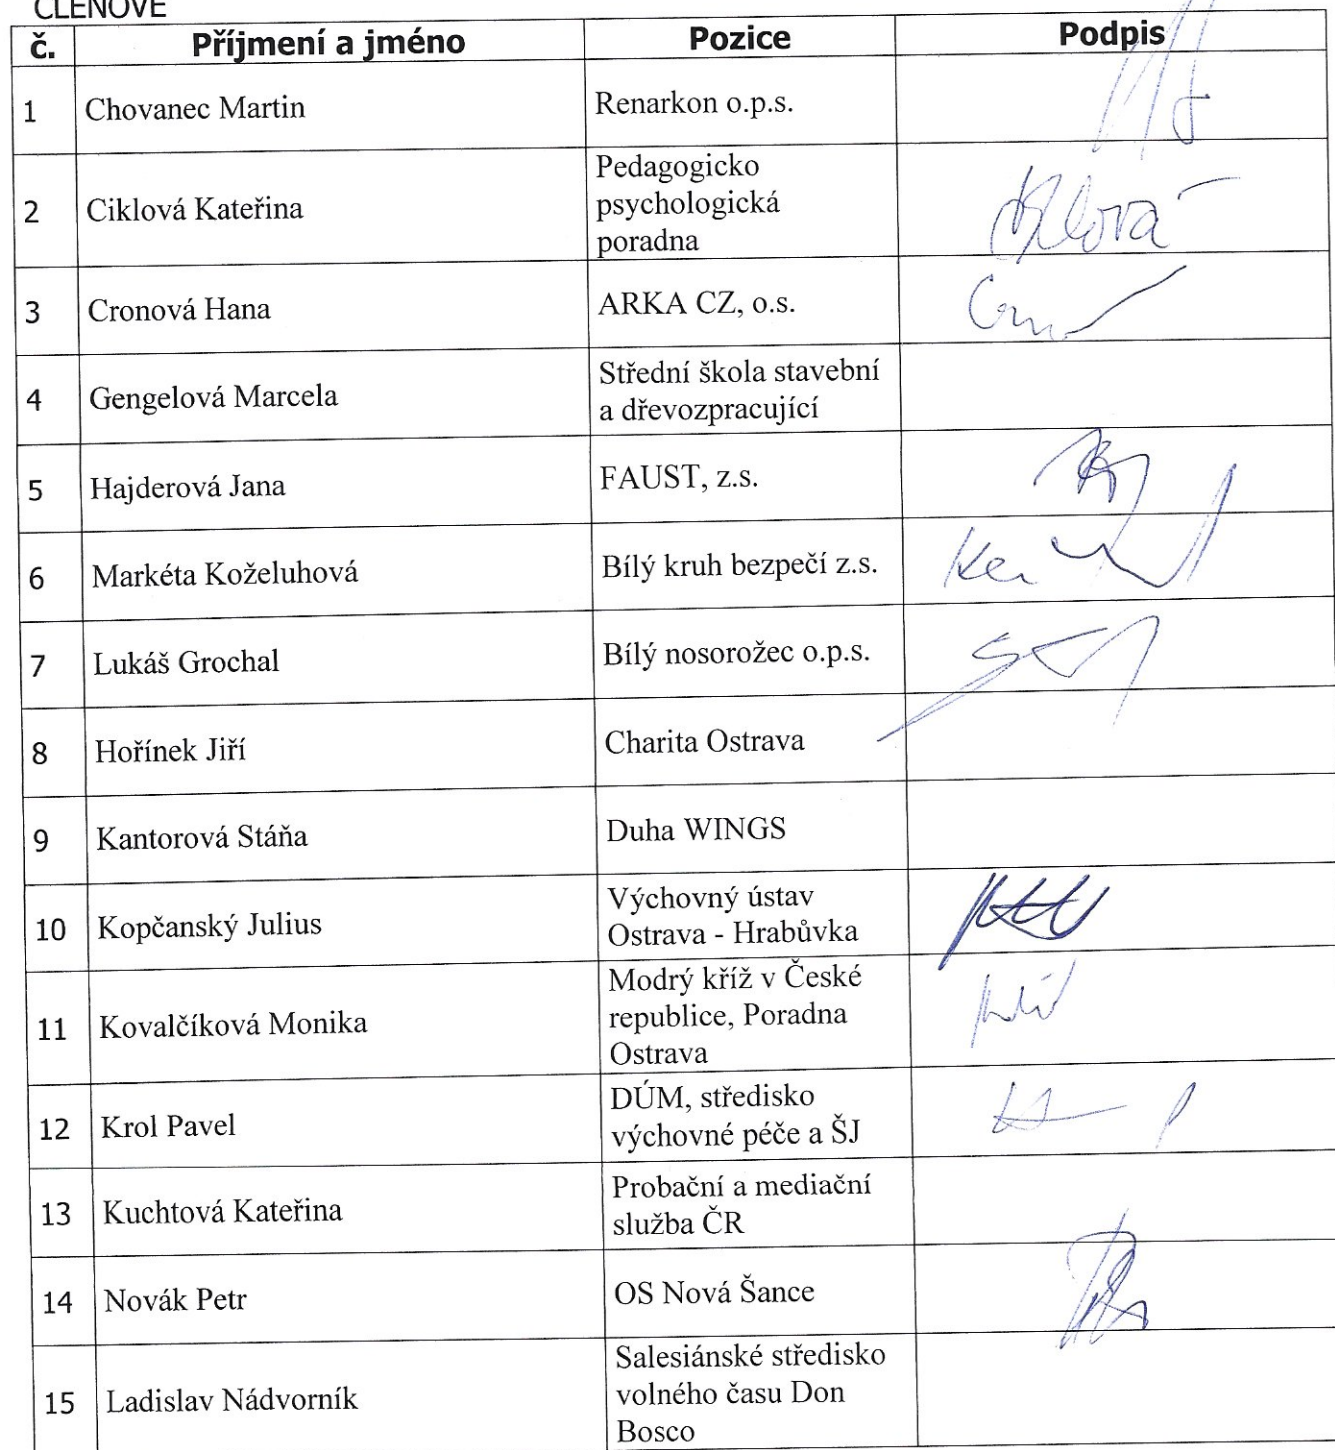 ČLENOVÉ
č. Příjmení a jméno Pozice Podpis
1 Chovanec Martin Renarkon o.p.s.
2 Ciklová Kateřina Pedagogicko
psychologická
poradna
3 Cronová Hana ARKA CZ, o.s.
4 Gengelová Marcela Střední škola stavební
a dřevozpracující
5 Hajderová Jana FAUST, z.s.
6 Markéta Koželuhová Bílý kruh bezpečí z.s.
7 Lukáš Grochal Bílý nosorožec o.p.s.
8 Hořínek Jiří Charita Ostrava
9 Kantorová Stáňa Duha WINGS
10 Kopčanský Julius Výchovný ústav
Ostrava - Hrabůvka
11 Kovalčíková Monika Modrý kříž v České
republice, Poradna
Ostrava
12 Krol Pavel DÚM, středisko
výchovné péče a ŠJ
13 Kuchtová Kateřina Probační a mediační
služba ČR
14 Novák Petr OS Nová Šance
15 Ladislav Nádvorník Salesiánské středisko
volného času Don
Bosco